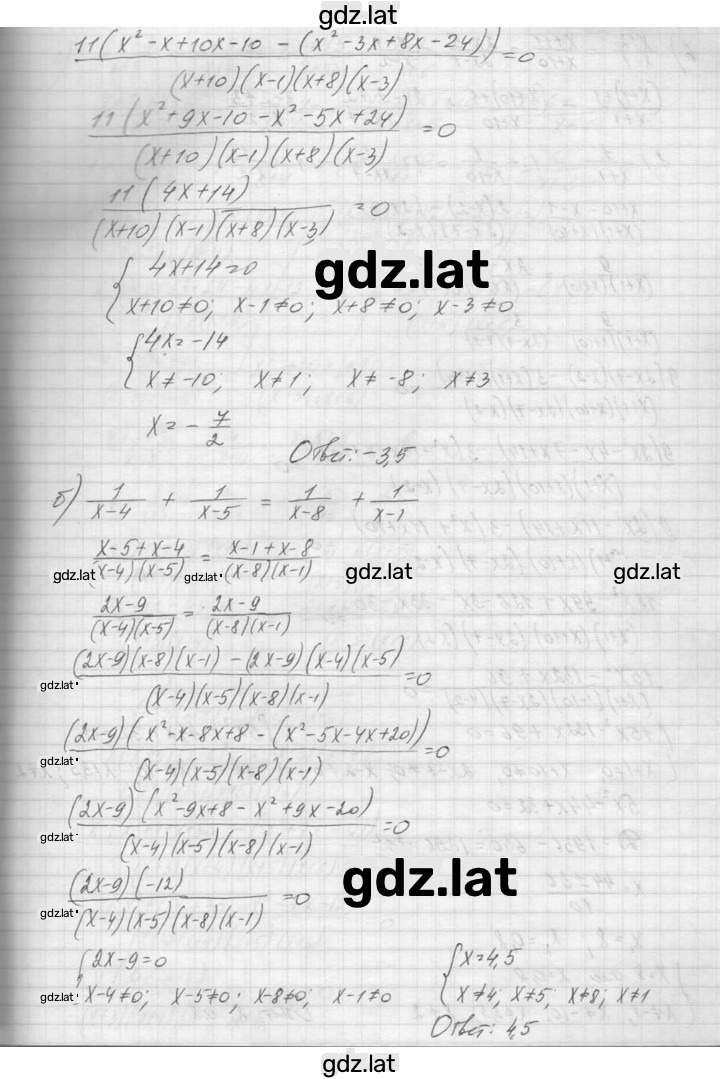 gdz.lat
11(x²-x+10x-10 - (x²-3x+8x-24))/((x+10)(x-1)(x+8)(x-3)) =0
11(x²+9x-10-x²-5x+24)/((x+10)(x-1)(x+8)(x-3)) =0
11(4x+14)/((x+10)(x-1)(x+8)(x-3)) =0
gdz.lat
{ 4x+14=0
x+10≠0; x-1≠0; x+8≠0; x-3≠0
{ 4x=-14
x≠-10; x≠1; x≠-8; x≠3
x=-7/2
Ответ: -3,5
б) 1/(x-4) + 1/(x-5) = 1/(x-8) + 1/(x-1)
(x-5+x-4)/((x-4)(x-5)) = (x-1+x-8)/((x-8)(x-1))
gdz.lat gdz.lat gdz.lat gdz.lat
(2x-9)/((x-4)(x-5)) = (2x-9)/((x-8)(x-1))
((2x-9)(x-8)(x-1) - (2x-9)(x-4)(x-5))/((x-4)(x-5)(x-8)(x-1)) =0
gdz.lat
(2x-9)(x²-x-8x+8 - (x²-5x-4x+20))/((x-4)(x-5)(x-8)(x-1)) =0
gdz.lat
(2x-9)(x²-9x+8-x²+9x-20)/((x-4)(x-5)(x-8)(x-1)) =0
gdz.lat
gdz.lat
(2x-9)(-12)/((x-4)(x-5)(x-8)(x-1)) =0
gdz.lat
{ 2x-9=0
x-4≠0; x-5≠0; x-8≠0; x-1≠0
gdz.lat
{ x=4,5
x≠4; x≠5; x≠8; x≠1
Ответ: 4,5
gdz.lat